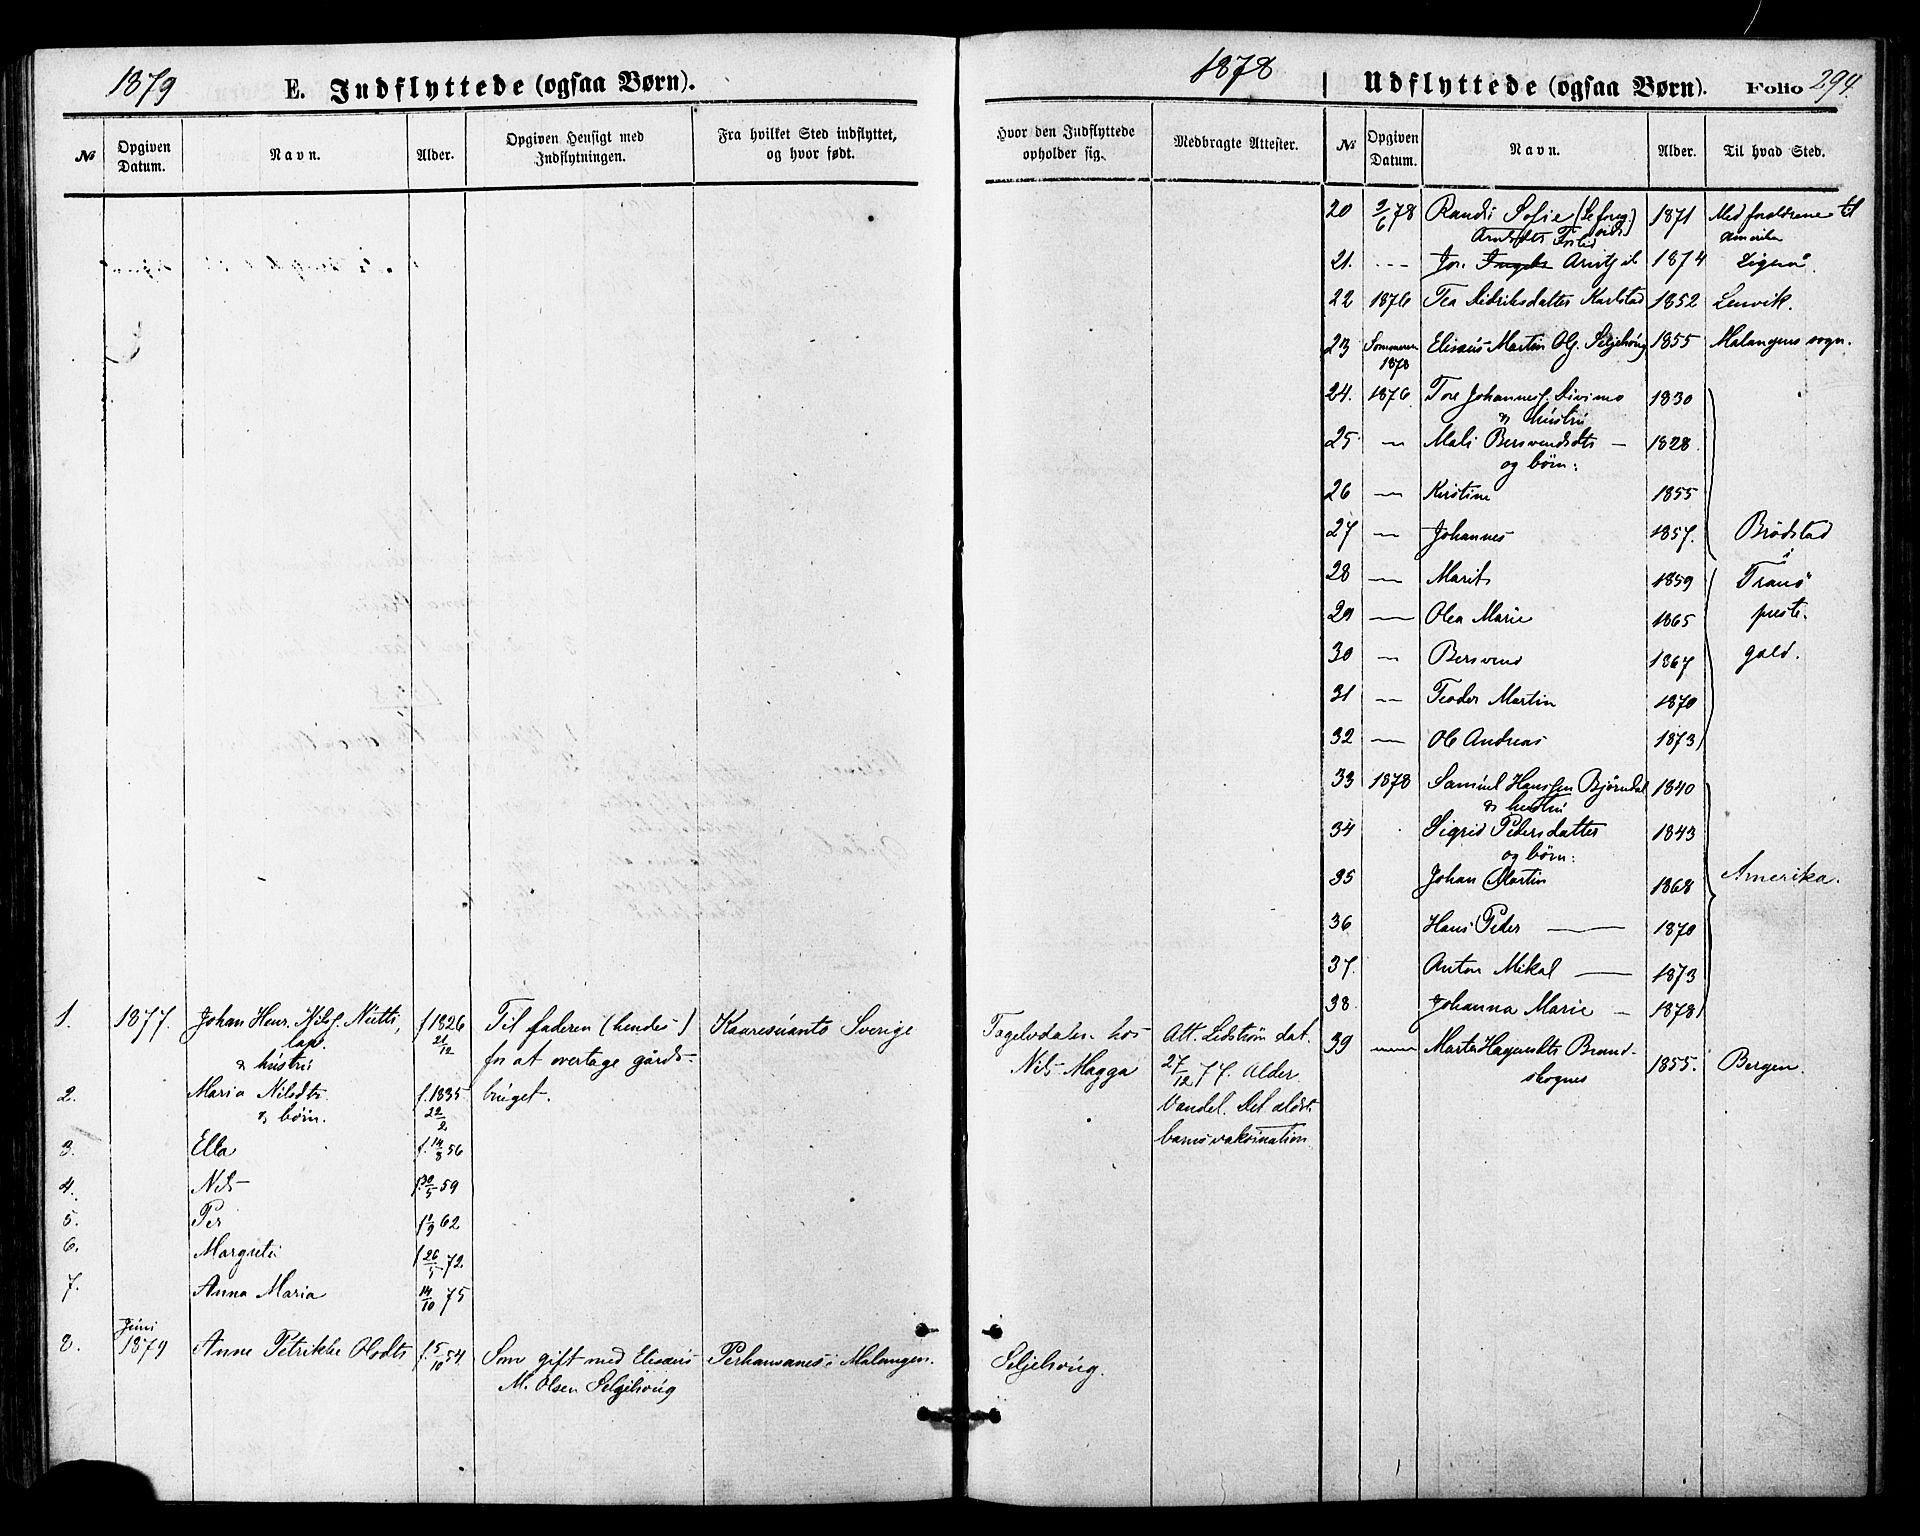 1879
E. Indflyttede (ogsaa Børn).
1878
Udflyttede (ogsaa Børn).
Folio 294.
№ | Opgiven Datum. | Navn. | Alder. | Opgiven Hensigt med Indflytningen. | Fra hvilket Sted indflyttet, og hvor født.
Hvor den Indflyttede opholder sig. | Medbragte Attester. | № | Opgiven Datum. | Navn. | Alder. | Til hvad Sted.
1. 1877. Johan Henr. Nilss. Nutti, f 1826 Til faderen (hendes) Karesuanto Sverige
lap. 21/12 for at overtage gårds-
& hustru
2. Maria Nilsdtr. f. 1835 bruget.
& børn. 22/2
3. Ella f. 14/8 56
4. Nils f. 30/5 59
5. Per f 1/9 62
6. Margreta f 26/5 72.
7. Anna Maria 14/10 75
8. Juni 1879 Anne Petrikke Olsdtr f. 5/10 54 Som gift med Elisæus Perhansanes i Malangen.
M. Olsen Seljehoug
Tagelvdalen hos Att. Lidström dat.
Nils Magga 27/12 77. Alder
Vandel. Det ældst.
barns vaksination
Seljehoug.
20 9/6 78 Randi Sofie 1871 Med forældrene til
Arntsdtr Amerika
21. --- Jon Arntj 1874 Ligeså.
22 1876 Tea Didriksdatter Karlstad 1852 Lenvik.
23 Sommeren 1878 Elisæus Martin Ols. Seljehoug 1855 Malangens sogn.
24. 1876. Tore Johannes. Divimo 1830
& hustru
25 — Mali Bersvendsdtr — 1828.
og børn:
26 — Kristine 1855
27 — Johannes 1857. Brødstad
i
28 — Marit 1859 Tranø
29 — Olea Marie 1865 preste-
30 — Bersvend 1867 gæld.
31 — Teoder Martin 1870
32 — Ole Andreas 1873
33 1878 Samuel Hanssen Bjørndal 1840
& hustru
34 Sigrid Pedersdatter 1843
og børn:
35 Johan Martin 1868 Amerika.
36 Hans Peder — 1870
37. Anton Mikal — 1873
38. Johanna Marie — 1878
39 — Marta Hagensdtr Brand- 1855. Bergen.
skognes